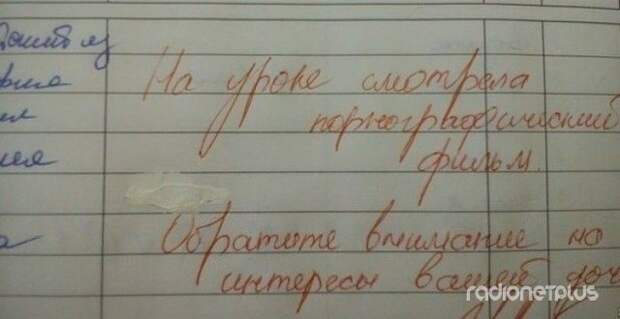 На уроке смотрела
порнографический
фильм.
Обратите внимание на
интересы вашей доч
radionetplus